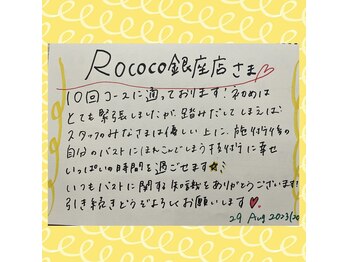 Rococo銀座店さま♡
10回コースに通っております！初めは
とても緊張しましたが、踏みだしてしまえば
スタッフのみなさまは優しい上に、施術後の
自分のバストにほれこんでしまう
いっぱいの時間を過ごせます
いつもバストに関する知識をありがとうございます！
引き続きどうぞよろしくお願いします♥.
29 Aug 2023/20